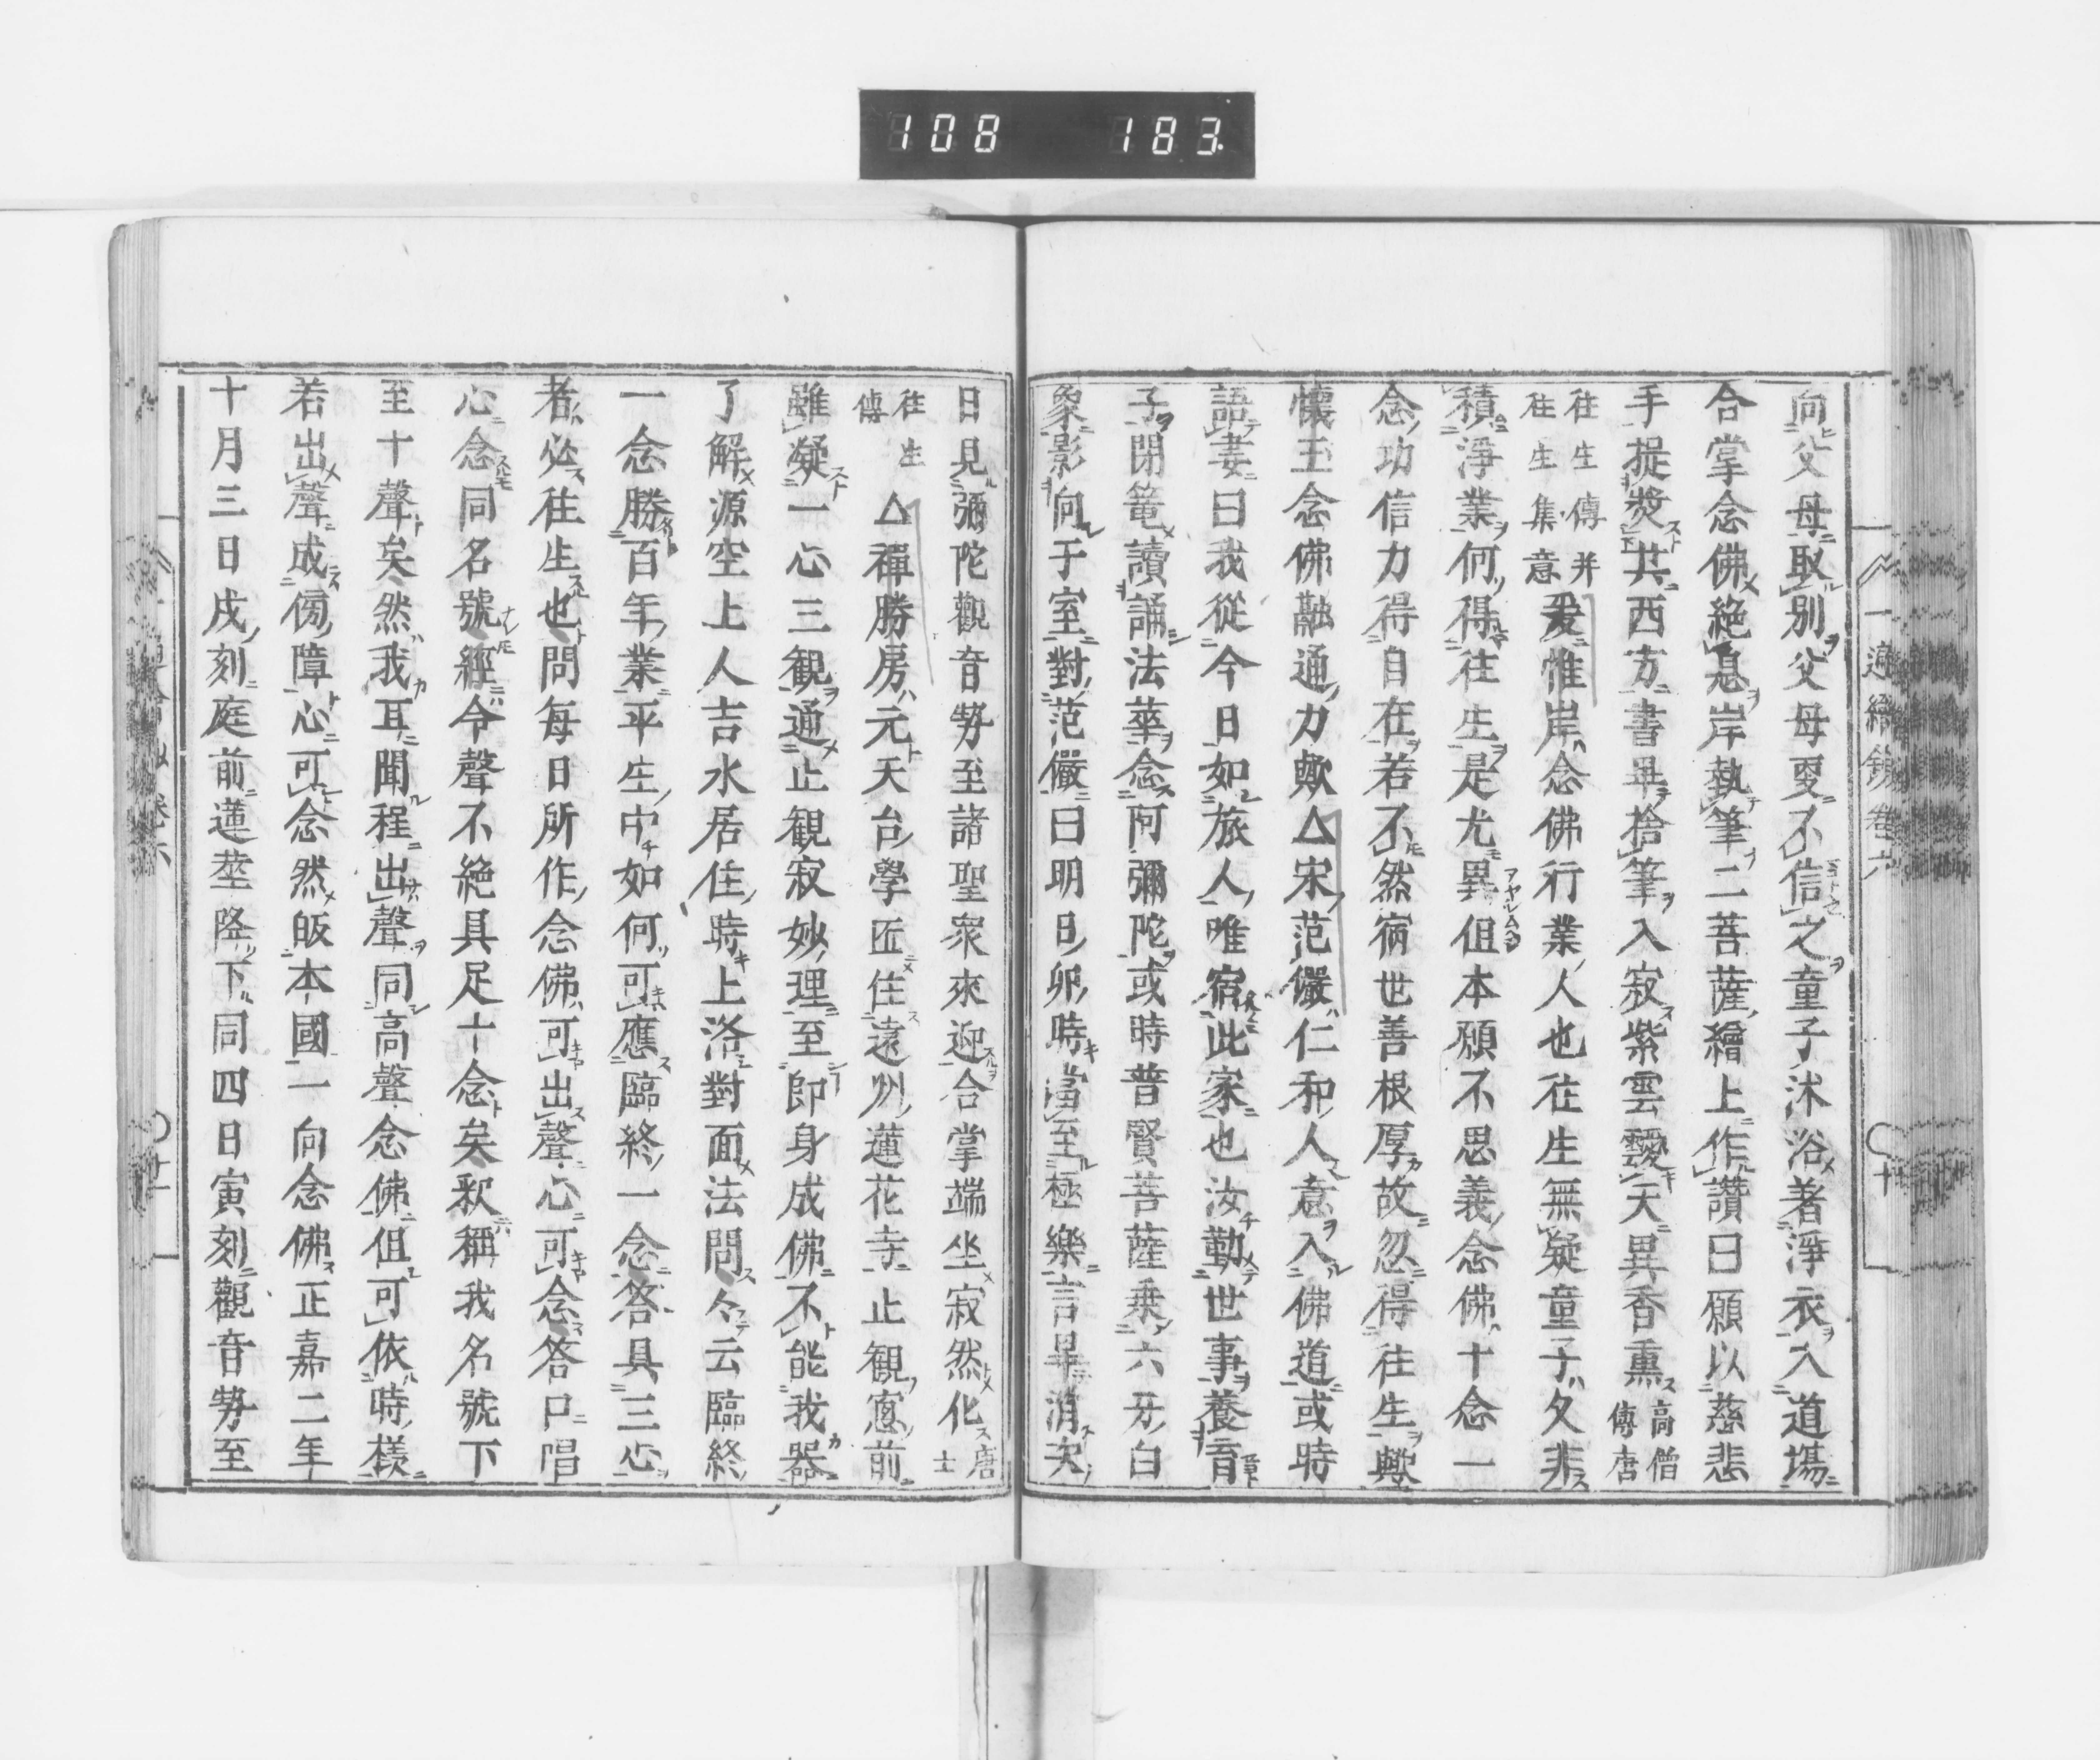 108 183
向父母取別父母更不信之童子沐浴著淨衣入道場
合掌念佛絶息岸執筆二菩薩繪上作讚曰願以慈悲
手提奬共西方書畢捨筆入寂紫雲靉天異香熏高僧傳唐
往生傳并往生集意爰惟岸念佛行業人也往生無疑童子久非
積淨業何得往生是尤異但本願不思義念佛十念一
念功信力得自在若不然宿世善根厚故忽得往生歟
懷玉念佛融通力歟△宋范儼仁和人意入佛道或時
語妻曰我從今日如旅人唯宿此家也汝勤世事養育
子閉篭讀誦法華念阿彌陀或時普賢菩薩乗六牙白
象影向于室對范儼曰明日卯時當至極樂言畢消失
日見彌陀觀音勢至諸聖衆來迎合掌端坐寂然化唐士
往生傳△禪勝房元天台學匠住遠州蓮花寺止観窓前
雖凝一心三観通止観寂妙理至即身成佛不能我器
了解源空上人吉水居住時上洛對面法問々云臨終
一念勝百年業平生中如何可應臨終一念答具三心
者必往生也問毎日所作念佛可出聲心可念答口唱
心念同名號經令聲不絶具足十念矣釈稱我名號下
至十聲矣然我耳聞程出聲同高聲念佛但可依時様
若出聲成傍障心可念然皈本國一向念佛正嘉二年
十月三日戌刻庭前蓮莖降下同四日寅刻觀音勢至